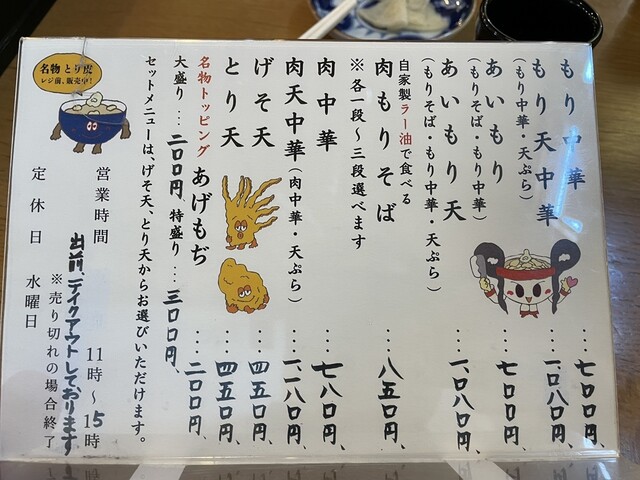 もり中華 ……七〇〇円、
もり天中華 …一、〇八〇円、
(もり中華・天ぷら)
あいもり ……七〇〇円、
(もりそば・もり中華)
あいもり天 …一、〇八〇円、
(もりそば・もり中華・天ぷら)
自家製ラー油で食べる
肉もりそば ……八五〇円、
※各一段〜三段選べます
肉中華 ……七八〇円、
肉天中華(肉中華・天ぷら) …一、一八〇円、
げそ天 ……四五〇円、
とり天 ……四五〇円、
名物トッピング あげもぢ ……二〇〇円、
大盛り…二〇〇円、特盛り…三〇〇円、
セットメニューは、げそ天、とり天からお選びいただけます。
名物 とり虎
レジ前、販売中!
営業時間 11時〜15時
出前、テイクアウトしております
※売り切れの場合終了
定休日 水曜日